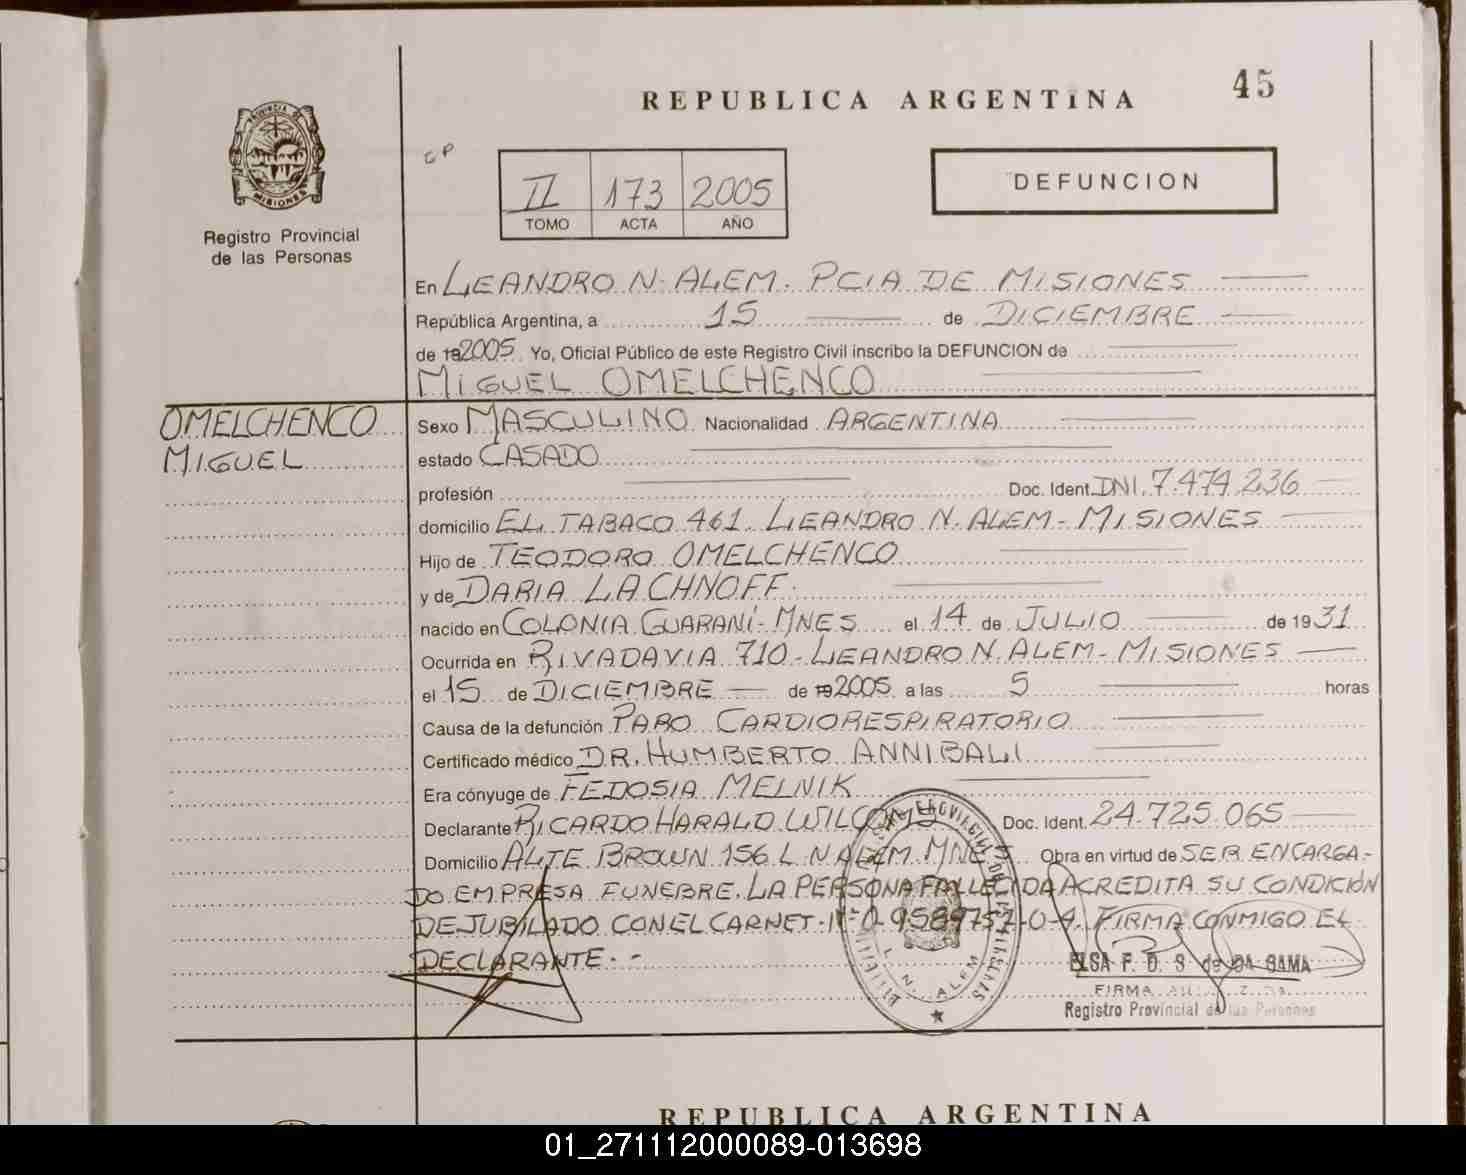 45
REPUBLICA ARGENTINA
PROVINCIA DE
MISIONES
Registro Provincial
de las Personas
CP
II 173 2005
TOMO ACTA AÑO
DEFUNCION
En LEANDRO N. ALEM. PCIA DE MISIONES
República Argentina, a 15 de DICIEMBRE
de 19 2005 Yo, Oficial Público de este Registro Civil inscribo la DEFUNCION de
MIGUEL OMELCHENCO
OMELCHENCO
MIGUEL
Sexo MASCULINO Nacionalidad ARGENTINA
estado CASADO
profesión Doc. Ident. DNI. 7.474.236
domicilio EL TABACO 461. LEANDRO N. ALEM - MISIONES
Hijo de TEODORO OMELCHENCO
y de DARIA LACHNOFF.
nacido en COLONIA GUARANÍ - MNES el 14 de JULIO de 1931
Ocurrida en RIVADAVIA 710 - LEANDRO N. ALEM - MISIONES
el 15 de DICIEMBRE de 19 2005 a las 5 horas
Causa de la defunción PARO CARDIORESPIRATORIO
Certificado médico DR. HUMBERTO ANNIBALI
Era cónyuge de FEDOSIA MELNIK
Declarante RICARDO HARALD Doc. Ident. 24.725.065
Domicilio ALTE BROWN 156 L. N ALEM. MNES Obra en virtud de SER ENCARGA-
DO EMPRESA FUNEBRE. LA PERSONA FALLECIDA ACREDITA SU CONDICIÓN
DE JUBILADO CON EL CARNET. Nº 0-9589757-0-4. FIRMA CONMIGO EL
DECLARANTE. -
L. N. ALEM
ELSA F. D. S de DA GAMA
FIRMA
Registro Provincial de las Personas
REPUBLICA ARGENTINA
01_271112000089-013698